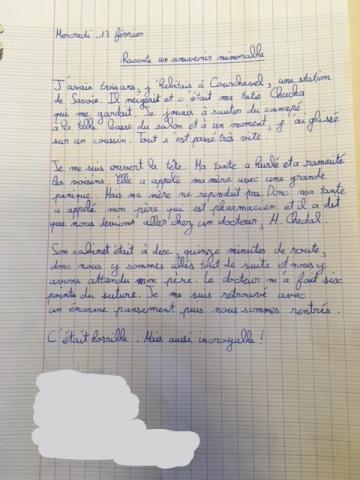 Mercredi 13 février
Raconte un souvenir mémorable
J'avais trois ans, j'habitais à Courchevel, une station
de Savoie. Il neigeait et c'était ma tata Chacha
qui me gardait. Je jouais à sauter du canapé
à la table basse du salon et à un moment, j'ai glissé
sur un coussin. Tout s'est passé très vite.
Je me suis ouvert la tête. Ma tante a hurlé et a rameuté
les voisins. Elle a appelé ma mère avec une grande
panique. Mais ma mère ne repondait pas. Donc ma tante
a appelé mon père qui est pharmacien, et il a dit
que nous devions aller chez un docteur, M. Chedal.
Son cabinet était à disc, quinze minutes de route,
donc nous y sommes allés tout de suite et nous y
avons attendu mon père. Le docteur m'a fait sisc
points du suture. Je me suis retrouvé avec
un énorme pansement puis nous sommes rentrés.
C'était horrible. Mais aussi incroyable !